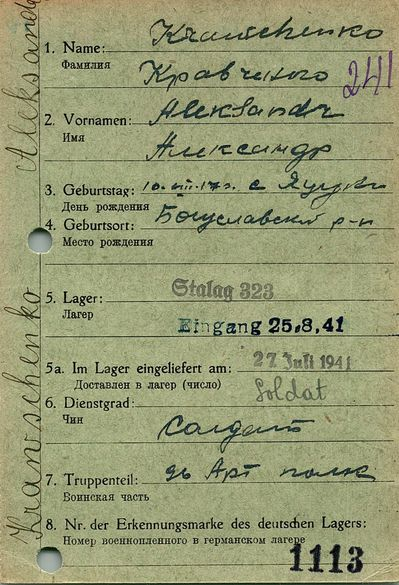 Krawschenko Aleksandr
1. Name: Krawschenko
Фамилия Кравченко
241
2. Vornamen: Aleksandr
Имя Александр
3. Geburtstag: 10.VIII.17г. с
День рождения
4. Geburtsort: Богуславский р-н
Место рождения
5. Lager: Stalag 323
Лагерь
Eingang 25.8.41
5a. Im Lager eingeliefert am: 27 Juli 1941
Доставлен в лагерь (число)
6. Dienstgrad: Soldat
Чин Солдат
7. Truppenteil: Арт полк
Воинская часть
8. Nr. der Erkennungsmarke des deutschen Lagers:
Номер военнопленного в германском лагере
1113